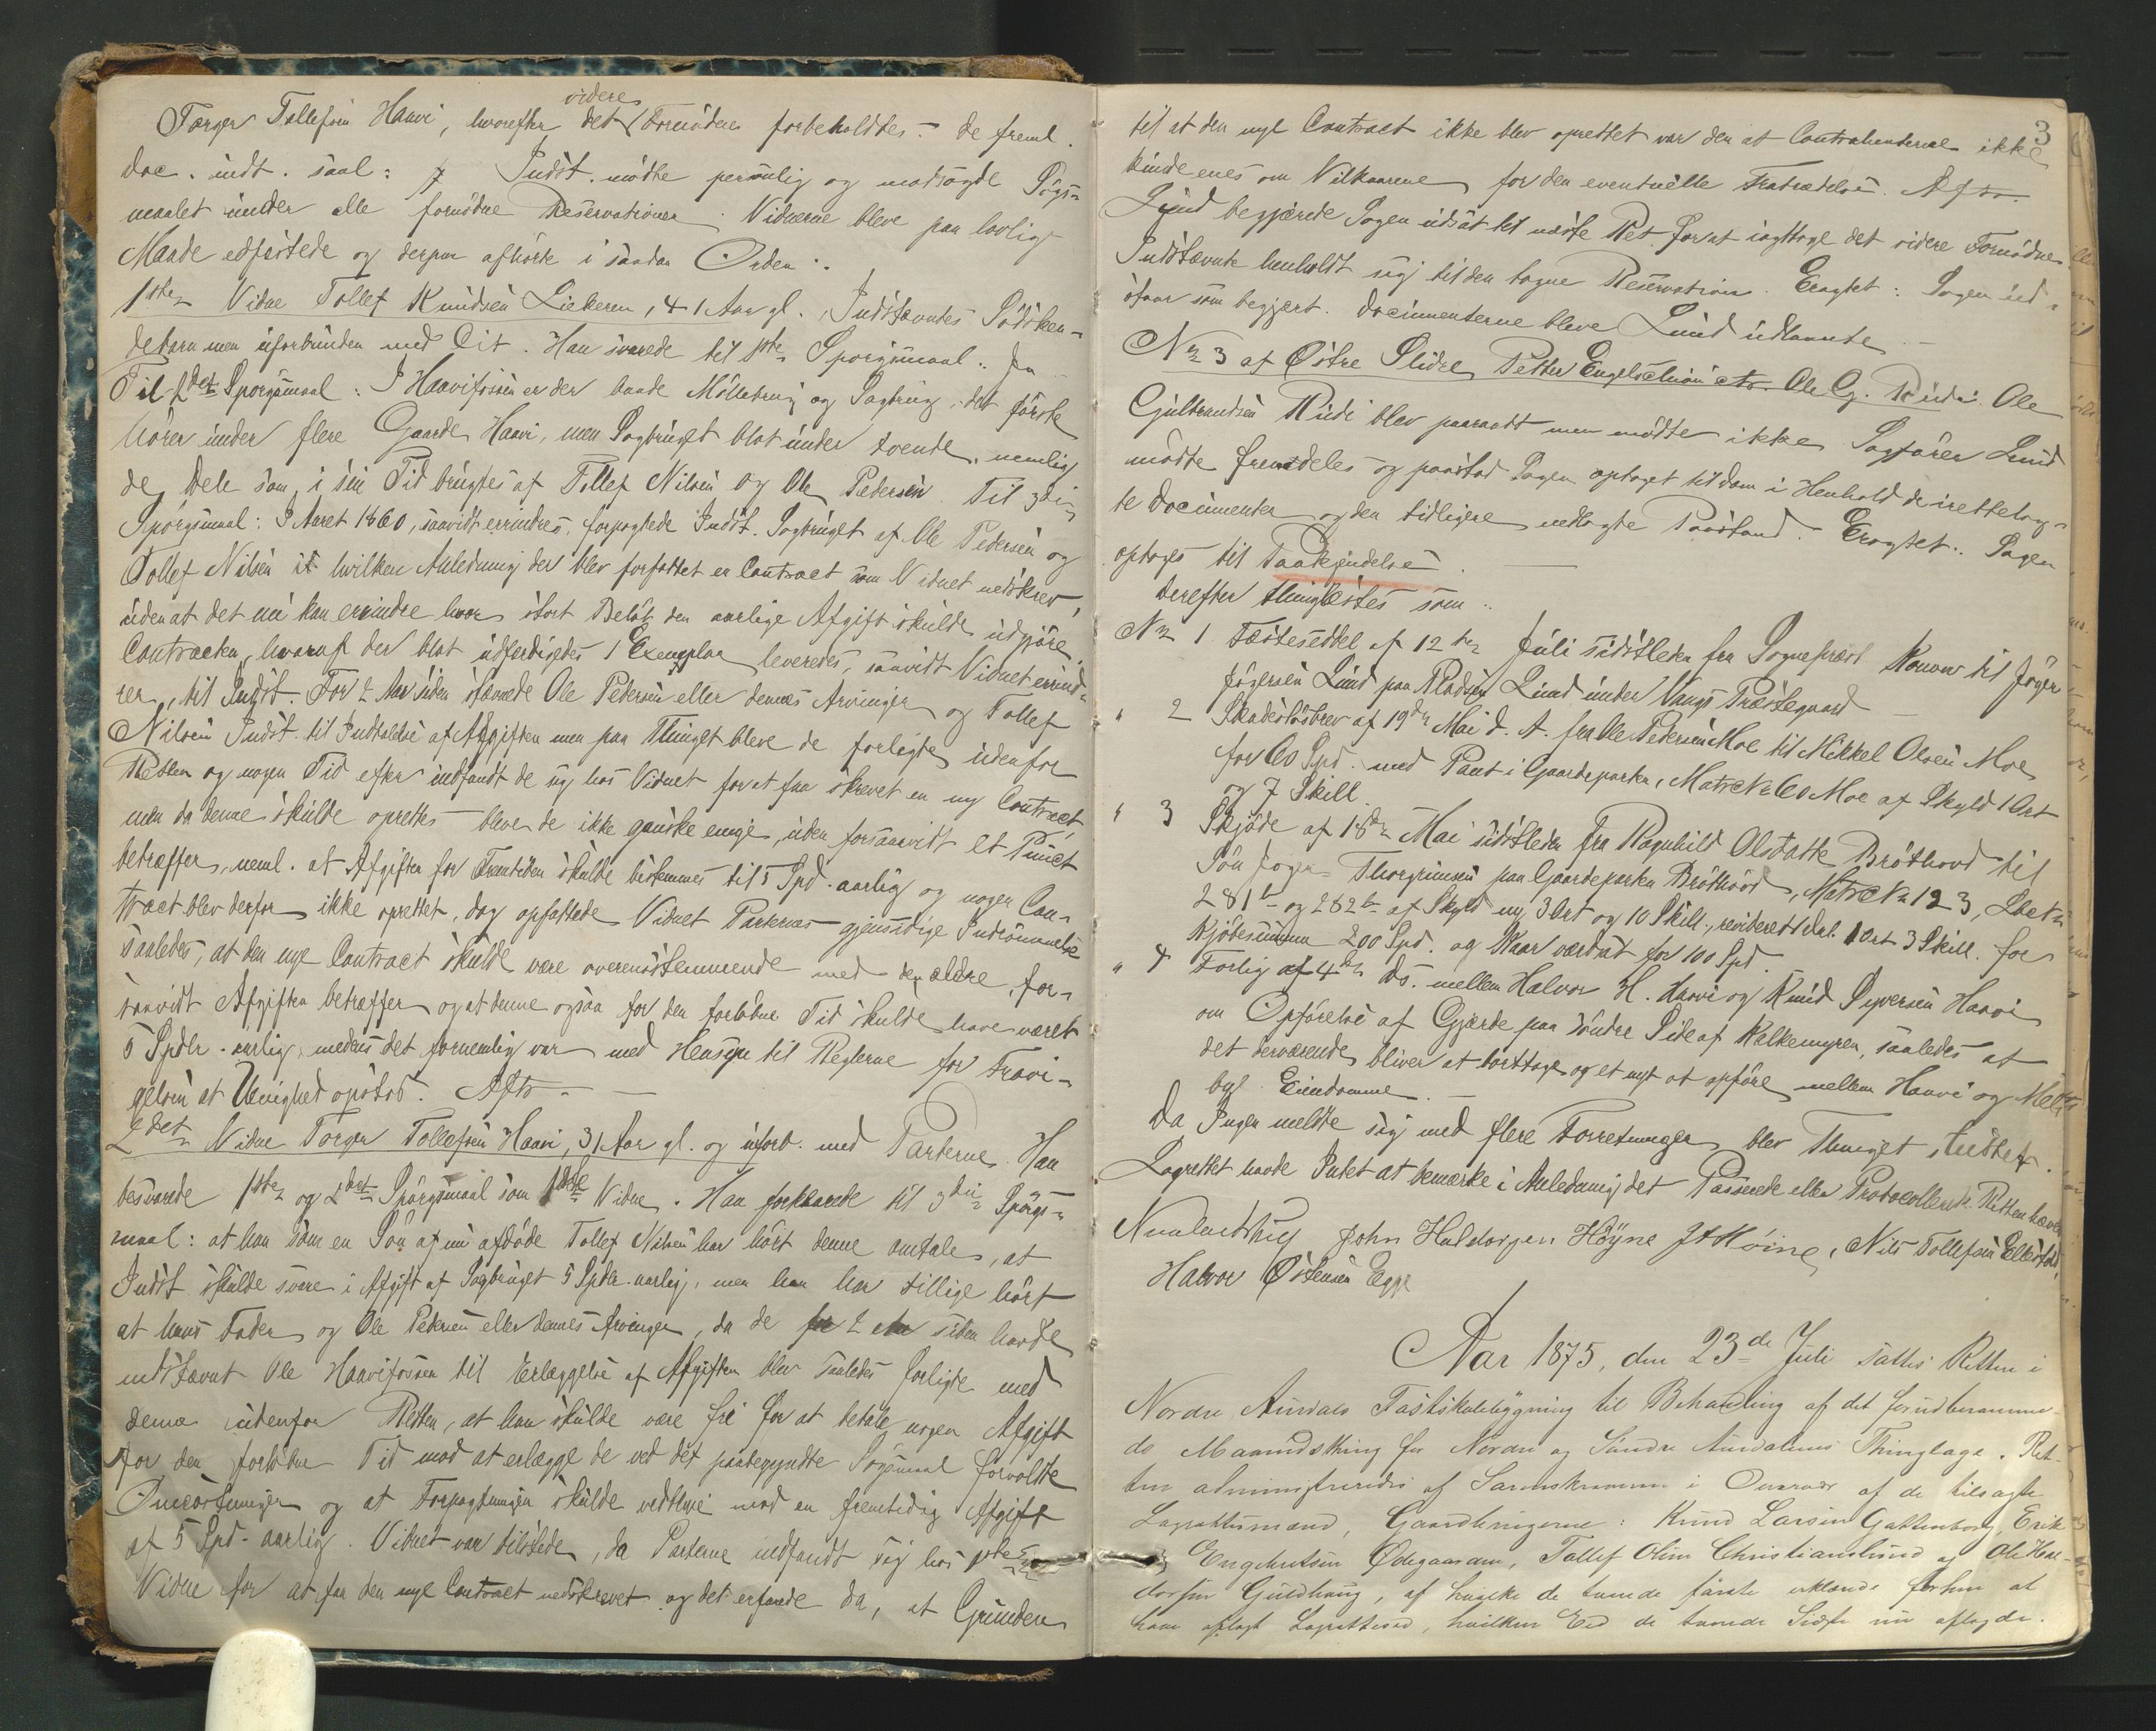 videre
Torger Tollefsen Haavi, hvorefter det Fornødne forbeholdtes. – De freml.
Doc. indt. saal: Indst. mødte personlig og modsagde Søgs-
maalet under alle fornødne Reservationer. Vidnerne bleve paa lovlig
Maade edfæstede og derpaa afhørte i saadan Orden:
1ste Vidne Tollef Knudsen Liekeren, 41 Aar gl. Indstævntes Sødsken-
debarn men uforbunden med Cit. Han svarede til 1ste Spørgsmaal: Ja
Til 2det Spørgsmaal: I Haavifossen er der baade Møllebrug og Sagbrug, det første
hører under flere Gaarde Haavi, men Sagbruget blot under tvende, nemlig
de Dele som i sin Tid brugtes af Tollef Nilsen og Ole Pedersen. Til 3die
Spørgsmaal: I Aaret 1860, saavidt erindres, forpagtede Indst. Sagbruget af Ole Pedersen og
Tollef Nilsen i hvilken Anledning der blev forfattet en Contract som Vidnet nedskrev,
uden at det nu kan erindre hvor stort Beløb den aarlige Afgift skulde udgjøre.
Contracten, hvoraf der blot udferdigedes 1 Exemplar leveredes, saavidt Vidnet erind-
rer, til Indst. For 2 Aar siden stævnede Ole Pedersen eller dennes Arvinger og Tollef
Nilsen Indst. til Indtalelse af Afgiften men paa Thinget bleve de forligte udenfor
Retten og nogen Tid efter indfandt de sig hos Vidnet for at faa skrevet en ny Contract,
men da denne skulde oprettes – bleve de ikke ganske enige, uden forsaavidt et Punct
betræffer, neml. at Afgiften for Fremtiden skulde bestemmes til 5 Spd. aarlig og nogen Con-
tract blev derfor ikke oprettet, dog opfattede Vidnet Parternes gjensidige Indrømmelse
saaledes, at den nye Contract skulde være overensstemmende med den ældre, for-
saavidt Afgiften betræffer og at denne ogsaa for den forløbne Tid skulde have været
5 Spdlr. aarlig, medens det fornemlig var med Hensyn til Reglerne for Fravi-
gelsen at Uenighed opstod. Aftr. –
2det Vidne Torger Tollefsen Haavi, 31 Aar gl. og uforb. med Parterne. Han
besvarede 1ste og 2det Spørgsmaal som 1ste Vidne. Han forklarede til 3die Spørgs-
maal: at han som en Søn af nu afdøde Tollef Nilsen har hørt denne omtale, at
Indst. skulde svare i Afgift af Sagbruget 5 Spdlr. aarlig, men han har tillige hørt
at hans Fader og Ole Pedersen eller dennes Arvinger, da de for 2 Aar siden havde
indstævnt Ole Haavifossen til Erlæggelse af Afgiften blev saaledes forligte med
denne udenfor Retten, at han skulde være fri for at betale nogen Afgift
for den forløbne Tid mod at erlægge de ved det paabegyndte Søgsmaal forvoldte
Omkostninger og at Forpagtningen skulde vedblive mod en fremtidig Afgift
af 5 Spd. aarlig. Vidnet var tilstede, da Parterne indfandt sig hos 1ste
Vidne for at faa den nye Contract nedskrevet og det erfarede da, at Grunden
3
til at den nye Contract ikke blev oprettet var den at Contrahenterne ikke
kunde enes om Vilkaarene for den eventuelle Fratrædelse. Aftr.
Lund begjærede Sagen udsat til næste Ret for at iagttage det videre Fornødne.
Indstævnte henholdt sig til den tagne Reservation. Eragtet: Sagen ud-
staar som begjært. Documenterne bleve Lund udlaante. –
No 3 af Østre Slidre, Petter Engebrethsen ctr. Ole G. Rudi. Ole
Gulbrandsen Rudi blev paaraabt men mødte ikke. Sagfører Lund
mødte fremdeles og paastod Sagen optaget til Dom i Henhold de irettelag-
te Documenter og den tidligere nedlagte Paastand. Eragtet: Sagen
optages til Paakjendelse.
Derefter thinglæstes som:
No 1 Fæsteseddel af 12te Juli sidstleden fra Sognepræst Konow til Jøger
Jøgersen Lund paa Pladsen Lund under Vangs Præstegaard
" 2 Skadesløsbrev af 19de Mai d. A. fra Ole Pedersen Moe til Mikkel Olsen Moe
for 60 Spd. med Pant i Gaardeparten, Matr No 60 Moe af Skyld 1 Ort
og 7 Skill.
" 3 Skjøde af 18de Mai sidstleden fra Ragnhild Olsdatter Brøthovd til
Søn Thorgrimsen paa Gaardeparten Brøthovd, Matr No 123, Løbe No
281b og 282b af Skyld ny 3 Ort og 10 Skill., revideret 1 Dal. 1 Ort 3 Skill. for
Kjøbesumma 200 Spd. og Kaar værdsat for 100 Spd.
" 4 Forlig af 4de ds. mellem Halvor H. Haavi og Knud Syversen Haavi
om Opførelse af Gjerde paa søndre Side af Kalkemyren, saaledes at
det derværende bliver at borttage og et nyt at opføre mellem Haavi og
bys Eiendomme. –
Da Ingen meldte sig med flere Forretninger blev Thinget sluttet.
Lagrettet havde Intet at bemærke i Anledning det Passerede eller Protocollen. Retten hævet
John Halvorsen Høyne, Nils Tollefsen Ellestad,
Halvor Østensen Egge
Aar 1875, den 23de Juli sattes Retten i
Nordre Aurdals Fastskolebygning til Behandling af det forudberamme-
de Maanedsthing for Nordre og Søndre Aurdalernes Thinglage. Ret-
ten administreredes af Sorenskriveren i Overvær af de tilsagte
Lagrettesmænd, Gaardbrugerne: Knud Larsen Gattenborg, Erik
Engebretsen Ødegaarden, Tollef Olsen Christianslund og Ole Hal-
dorsen Guldhaug, af hvilke de tvende første erklærede forhen at
have aflagt Lagrettesed, hvilken Eed de tvende Sidste nu aflagde.